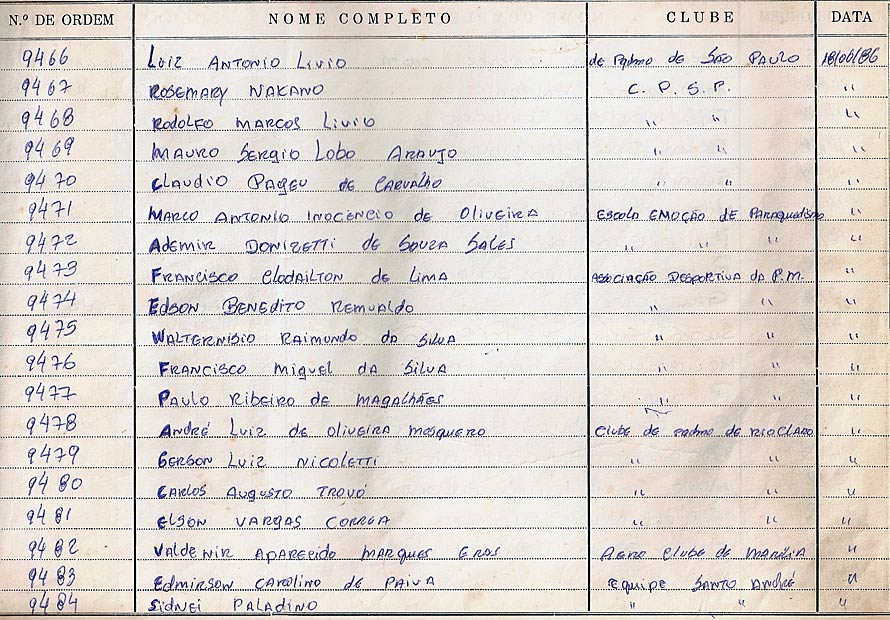 N.º DE ORDEM NOME COMPLETO CLUBE DATA
9466 Luiz Antonio Livio de Pqdmo de São Paulo 18/06/86
9467 Rosemary Nakano C. P. S. P. "
9468 Rodolfo Marcos Livio " " "
9469 Mauro Sergio Lobo Araujo " " "
9470 Claudio Pageu de Carvalho " " "
9471 Marco Antonio Inocencio de Oliveira Escola Emoção de Paraquedismo "
9472 Ademir Donizetti de Souza Sales " " " "
9473 Francisco Clodailton de Lima Associação Desportiva da P.M. "
9474 Edson Benedito Remualdo " " "
9475 Walternisio Raimundo da Silva " " "
9476 Francisco Miguel da Silva " " "
9477 Paulo Ribeiro de Magalhães " " "
9478 André Luiz de Oliveira Mesquero Clube de Pqdmo de Rio Claro "
9479 Gerson Luiz Nicoletti " " "
9480 Carlos Augusto Trovó " " "
9481 Elson Vargas Corrêa " " "
9482 Valdenir Aparecido Marques Eras Aero Clube de Marília "
9483 Edmirson Carolino de Paiva Equipe Santo André "
9484 Sidnei Paladino " " "